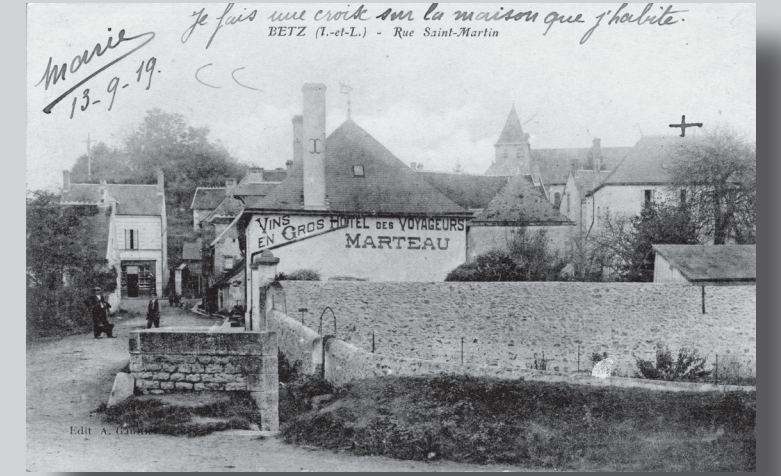 Je fais une croix sur la maison que j'habite.
BETZ (I.-et-L.) - Rue Saint-Martin
Marie
13-9-19.
VINS EN GROS
HOTEL DES VOYAGEURS
MARTEAU
Edit. A.